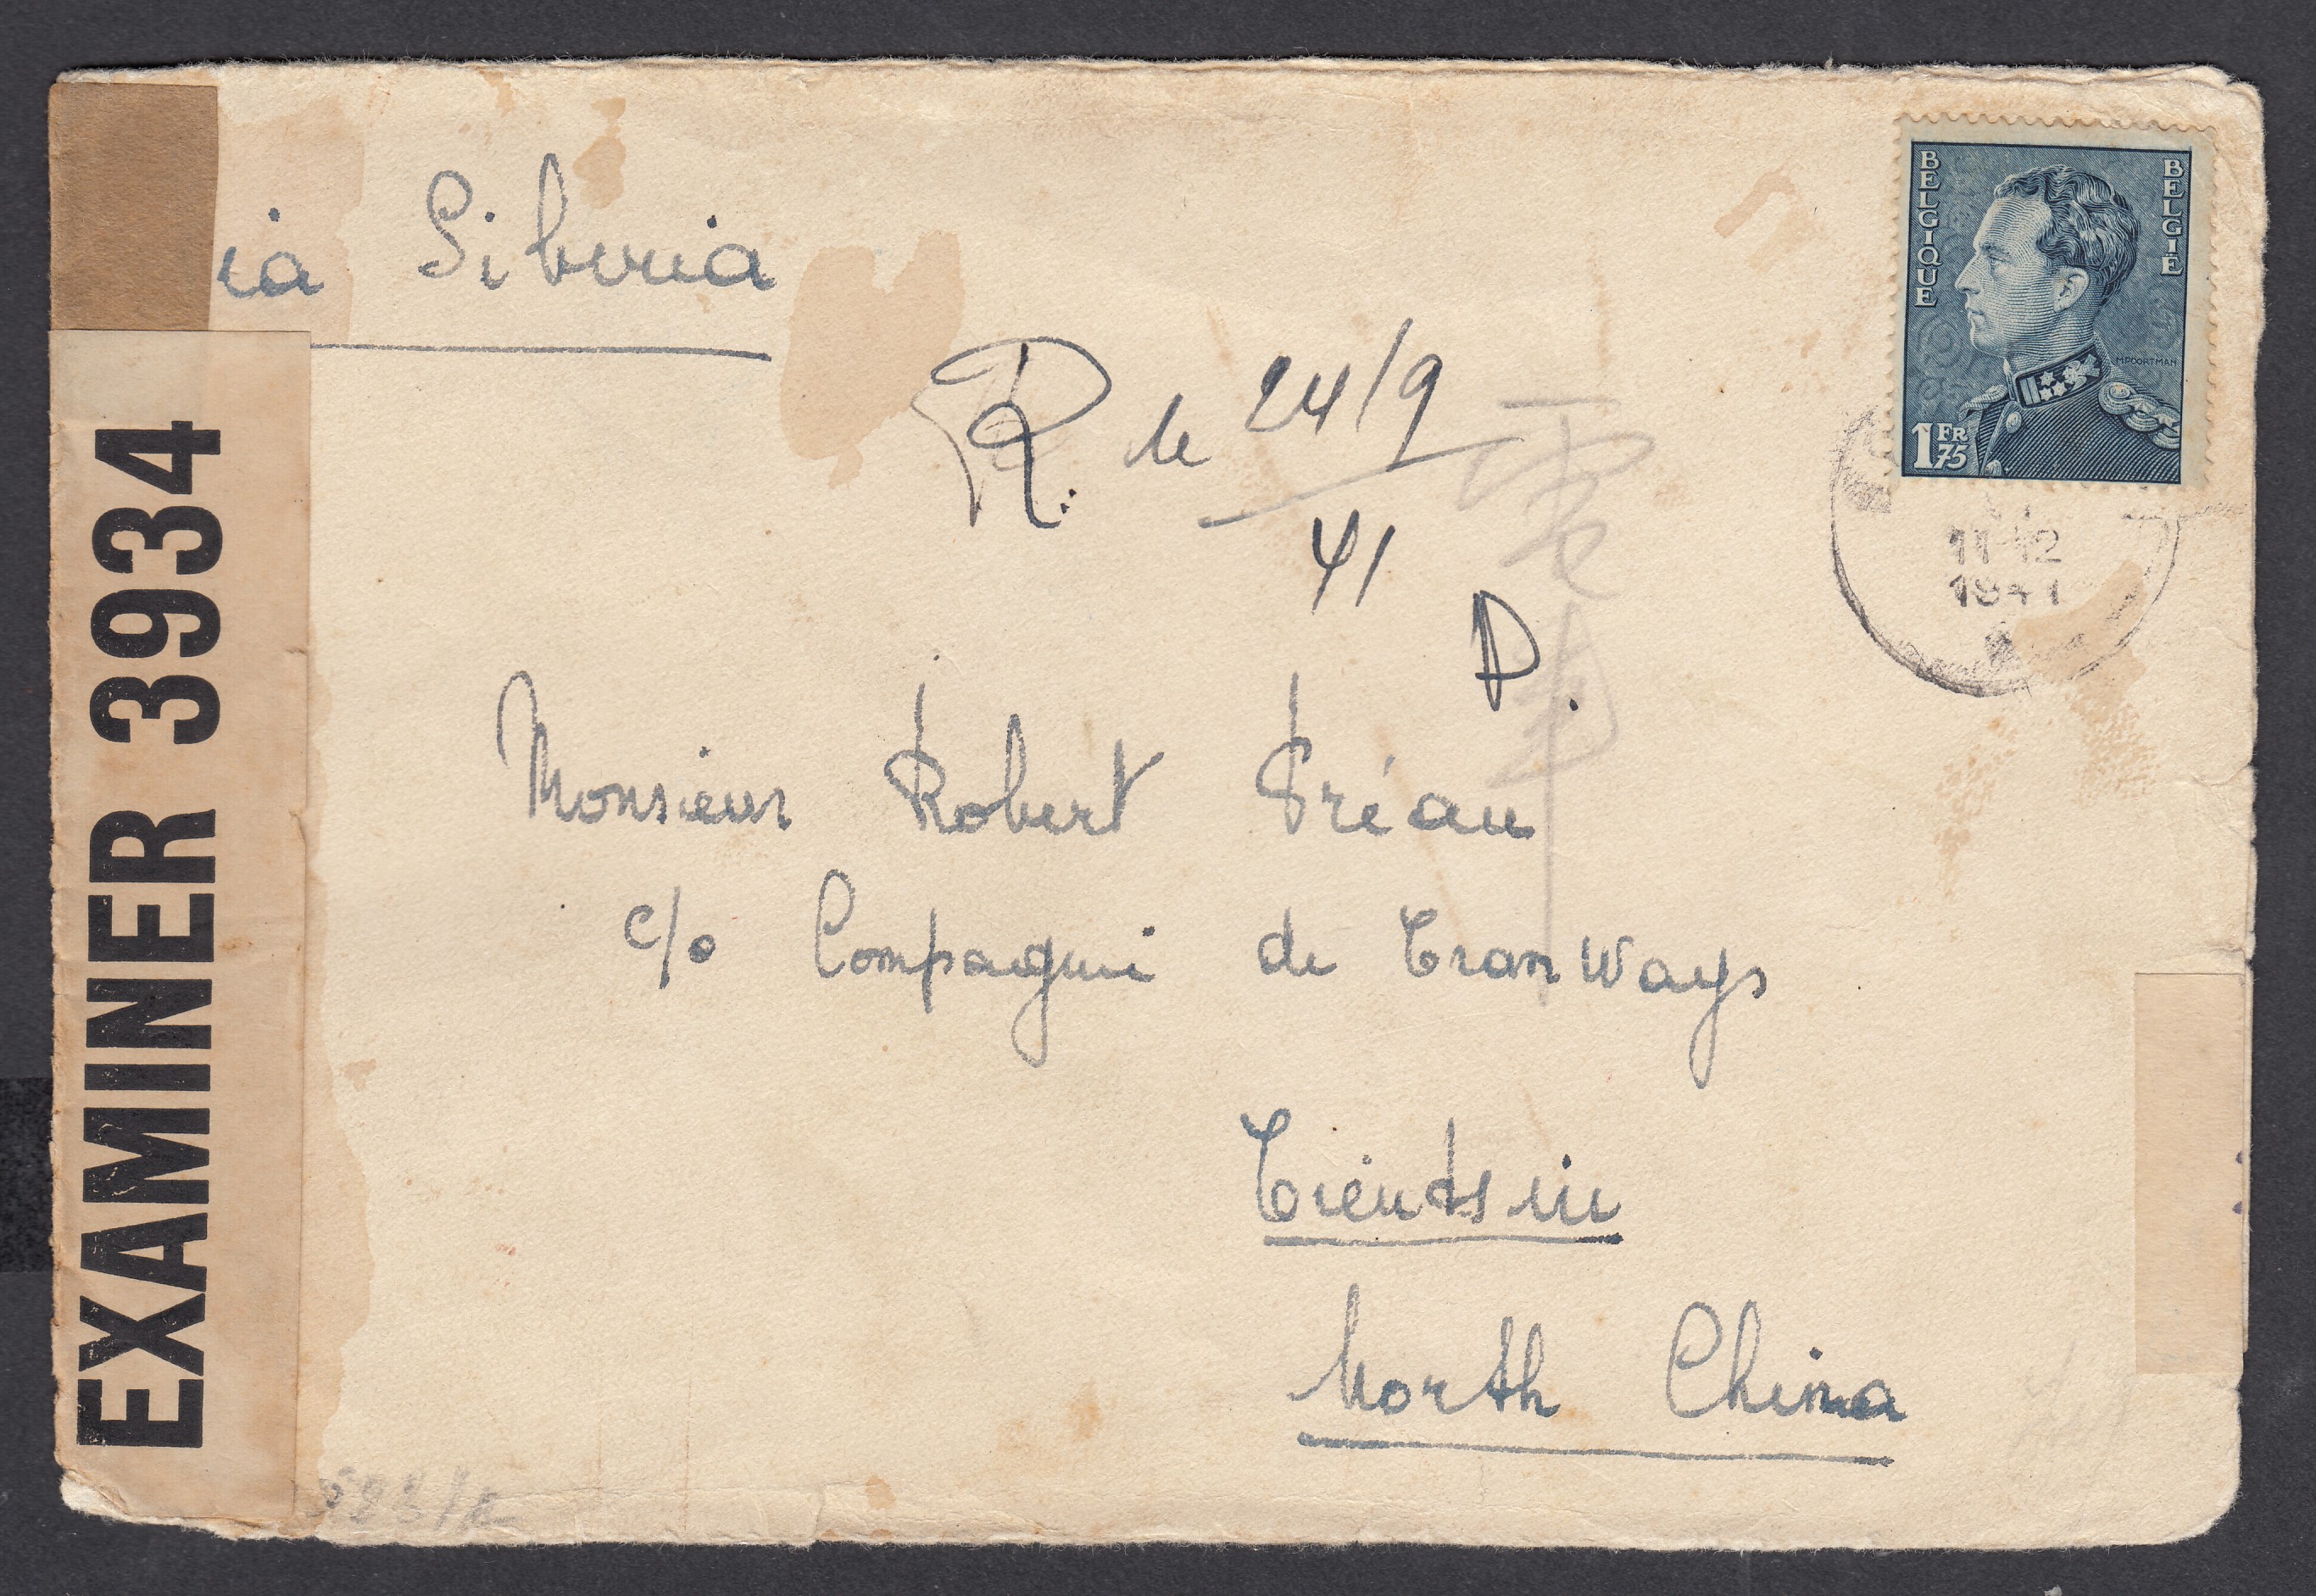 ia Siberia
BELGIQUE
BELGIË
MPOORTMAN
1 FR 75
R. le 24/9
41
11-12
1941
電車
D.
Monsieur Robert Préau
c/o Compagnie de TramWays
Tientsin
North China
EXAMINER 3934